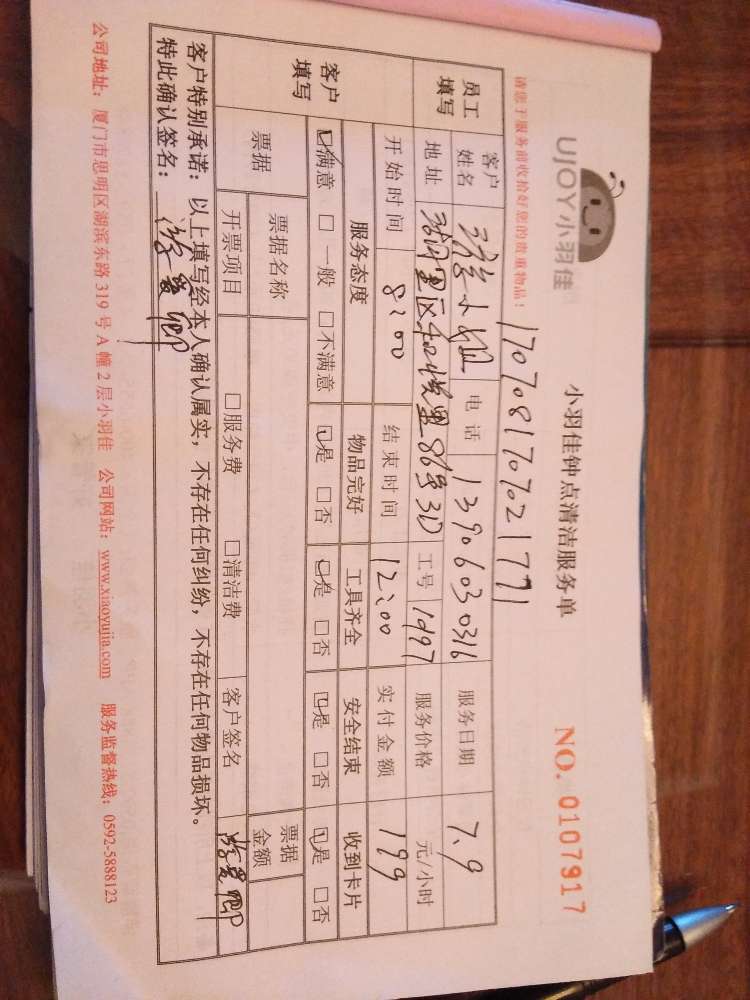 UJOY小羽佳
小羽佳钟点清洁服务单
NO. 0107917
请您于服务前收拾好您的贵重物品！
17070817070217 71
员工填写 客户姓名 小姐 电话 13906030316 服务日期 7.9
地址 湖里区 悦里86号3D 工号 1997 服务价格 元/小时
开始时间 8:00 结束时间 12:00 实付金额 199
客户填写 服务态度 物品完好 工具齐全 安全结束 收到卡片
☑满意 □一般 □不满意 ☑是 □否 ☑是 □否 ☑是 □否 ☑是 □否
票据 票据名称 票据金额
开票项目 □服务费 □清洁费 客户签名
客户特别承诺：以上填写经本人确认属实，不存在任何纠纷，不存在任何物品损坏。
特此确认签名：
公司地址：厦门市思明区湖滨东路 319 号 A 幢 2 层小羽佳 公司网站：www.xiaoyujia.com 服务监督热线：0592-5888123